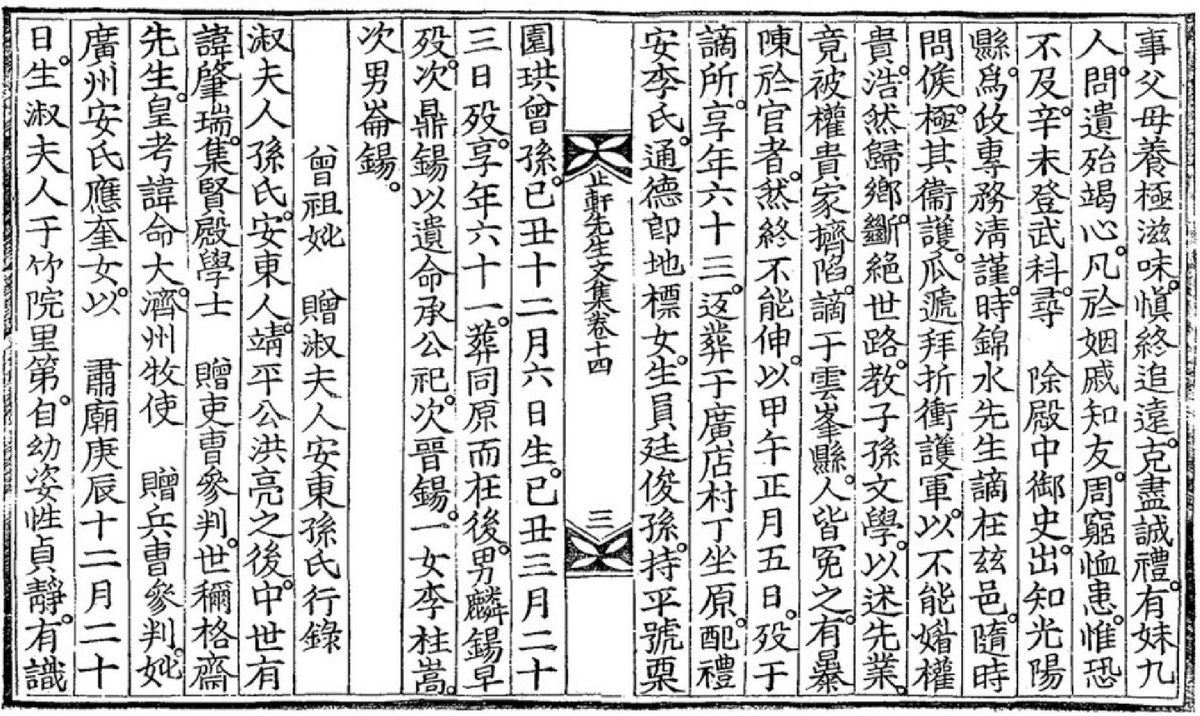 事父母養極滋味。愼終追遠。克盡誠禮。有妹九
人。問遺殆竭心。凡於姻戚知友。周窮恤患。惟恐
不及。辛未登武科。尋 除殿中御史。出知光陽
縣。爲政專務淸謹。時錦水先生謫在玆邑。隨時
問候。極其衞護。瓜遞拜折衝護軍。以不能媚權
貴。浩然歸鄕。斷絕世路。敎子孫文學。以述先業。
竟被權貴家擠陷。謫于雲峯縣。人皆冤之。有暴
陳於官者。然終不能伸。以甲午正月五日。歿于
謫所。享年六十三。返葬于廣店村丁坐原。配禮
安李氏。通德郞地標女。生員廷俊孫。持平號栗
止軒先生文集卷十四
三
園珙曾孫。己丑十二月六日生。己丑三月二十
三日歿。享年六十一。葬同原而在後。男麟錫早
歿。次鼎錫以遺命承公祀。次晉錫。一女李柱嵩。
次男崙錫。
曾祖妣 贈淑夫人安東孫氏行錄
淑夫人孫氏。安東人。靖平公洪亮之後。中世有
諱肇瑞。集賢殿學士 贈吏曹參判。世稱格齋
先生。皇考諱命大。濟州牧使 贈兵曹參判。妣
廣州安氏應奎女。以 肅廟庚辰十二月二十
日。生淑夫人于竹院里第。自幼姿性貞靜。有識